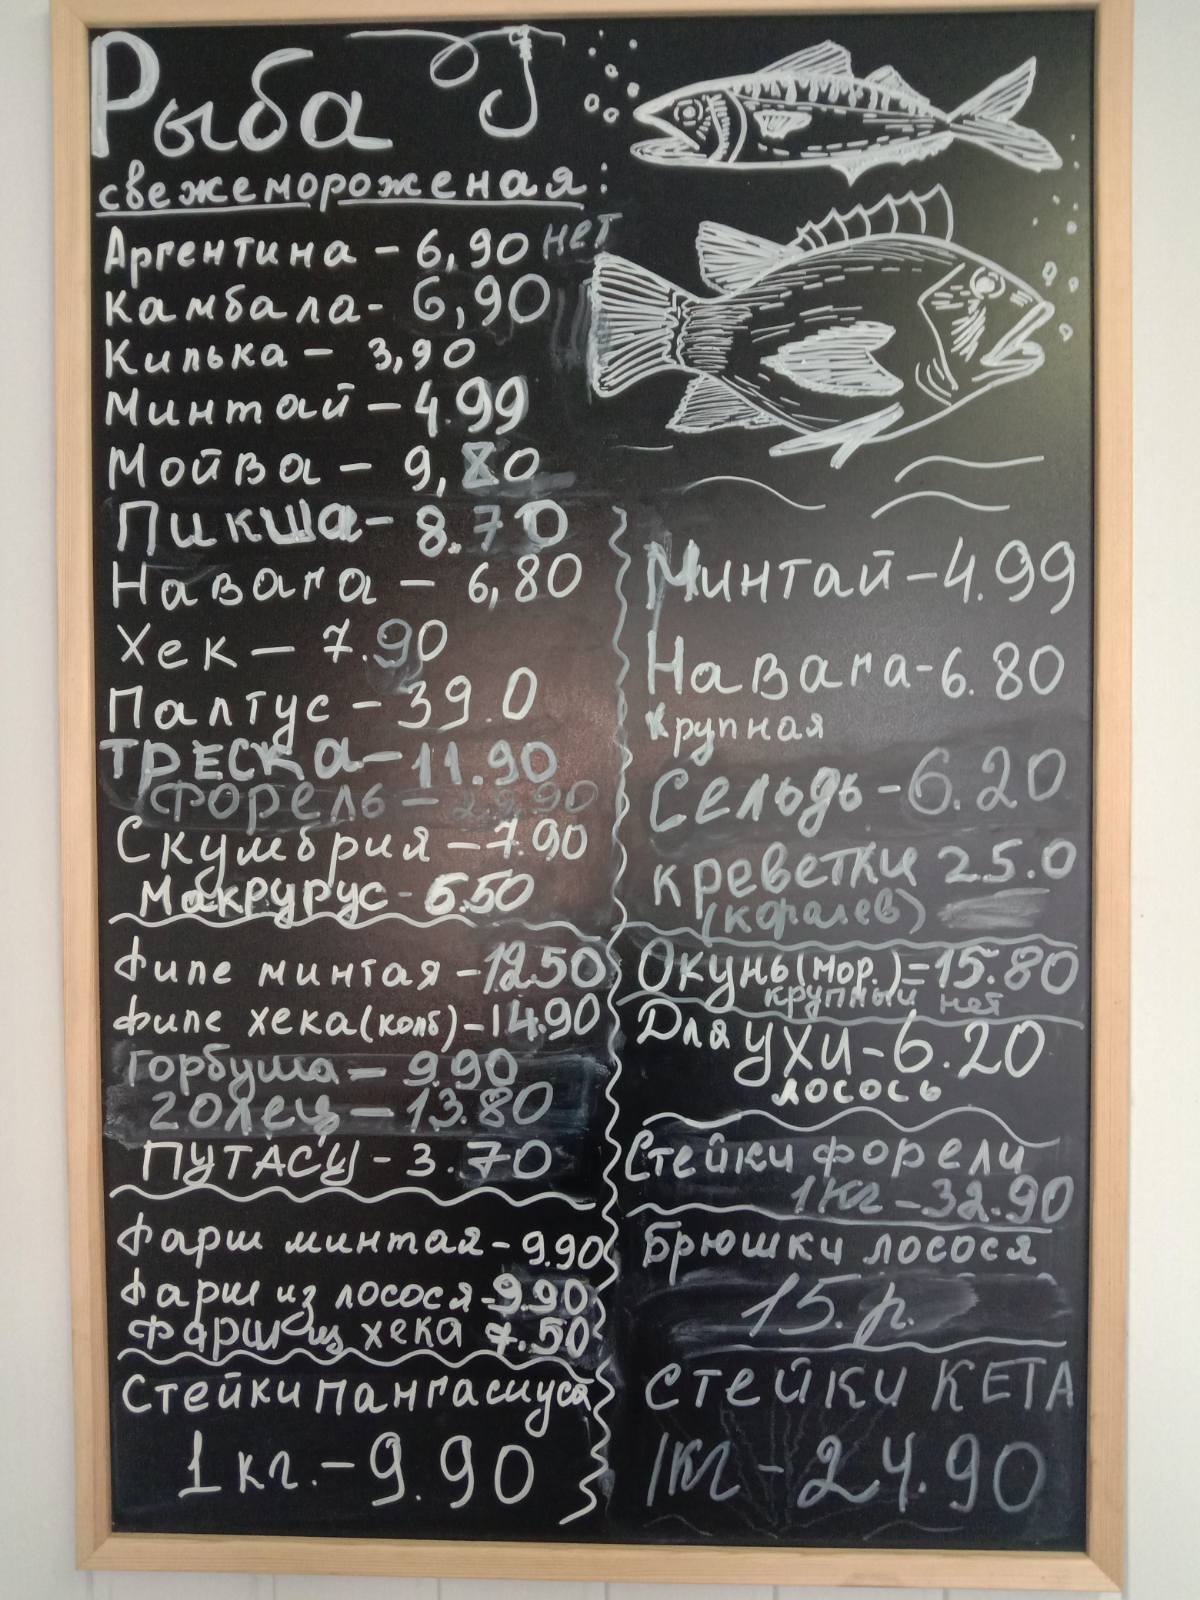 Рыба
свежемороженая:
Аргентина - 6,90 нет
Камбала - 6,90
Килька - 3,90
Минтай - 4.99
Мойва - 9,80
Пикша - 8.70
Навага - 6,80
Хек - 7.90
Палтус - 39.0
ТРЕСКА - 11.90
Форель -
Скумбрия - 7.90
Макрурус - 6.50
Филе минтая - 12.50
Филе хека(колб) - 14.90
Горбуша - 9.90
Голец - 13.80
ПУТАСУ - 3.70
Фарш минтая - 9.90
Фарш из лосося - 9.90
Фарш из хека 7.50
Стейки пангасиуса
1 кг. - 9.90
Минтай - 4.99
Навага - 6.80
крупная
Сельдь - 6.20
Креветки 25.0
(королев)
Окунь(мор.) = 15.80
крупный нет
Для ухи - 6.20
лосось
Стейки форели
1 кг - 32.90
Брюшки лосося
15. р.
Стейки КЕТА
1кг - 24.90